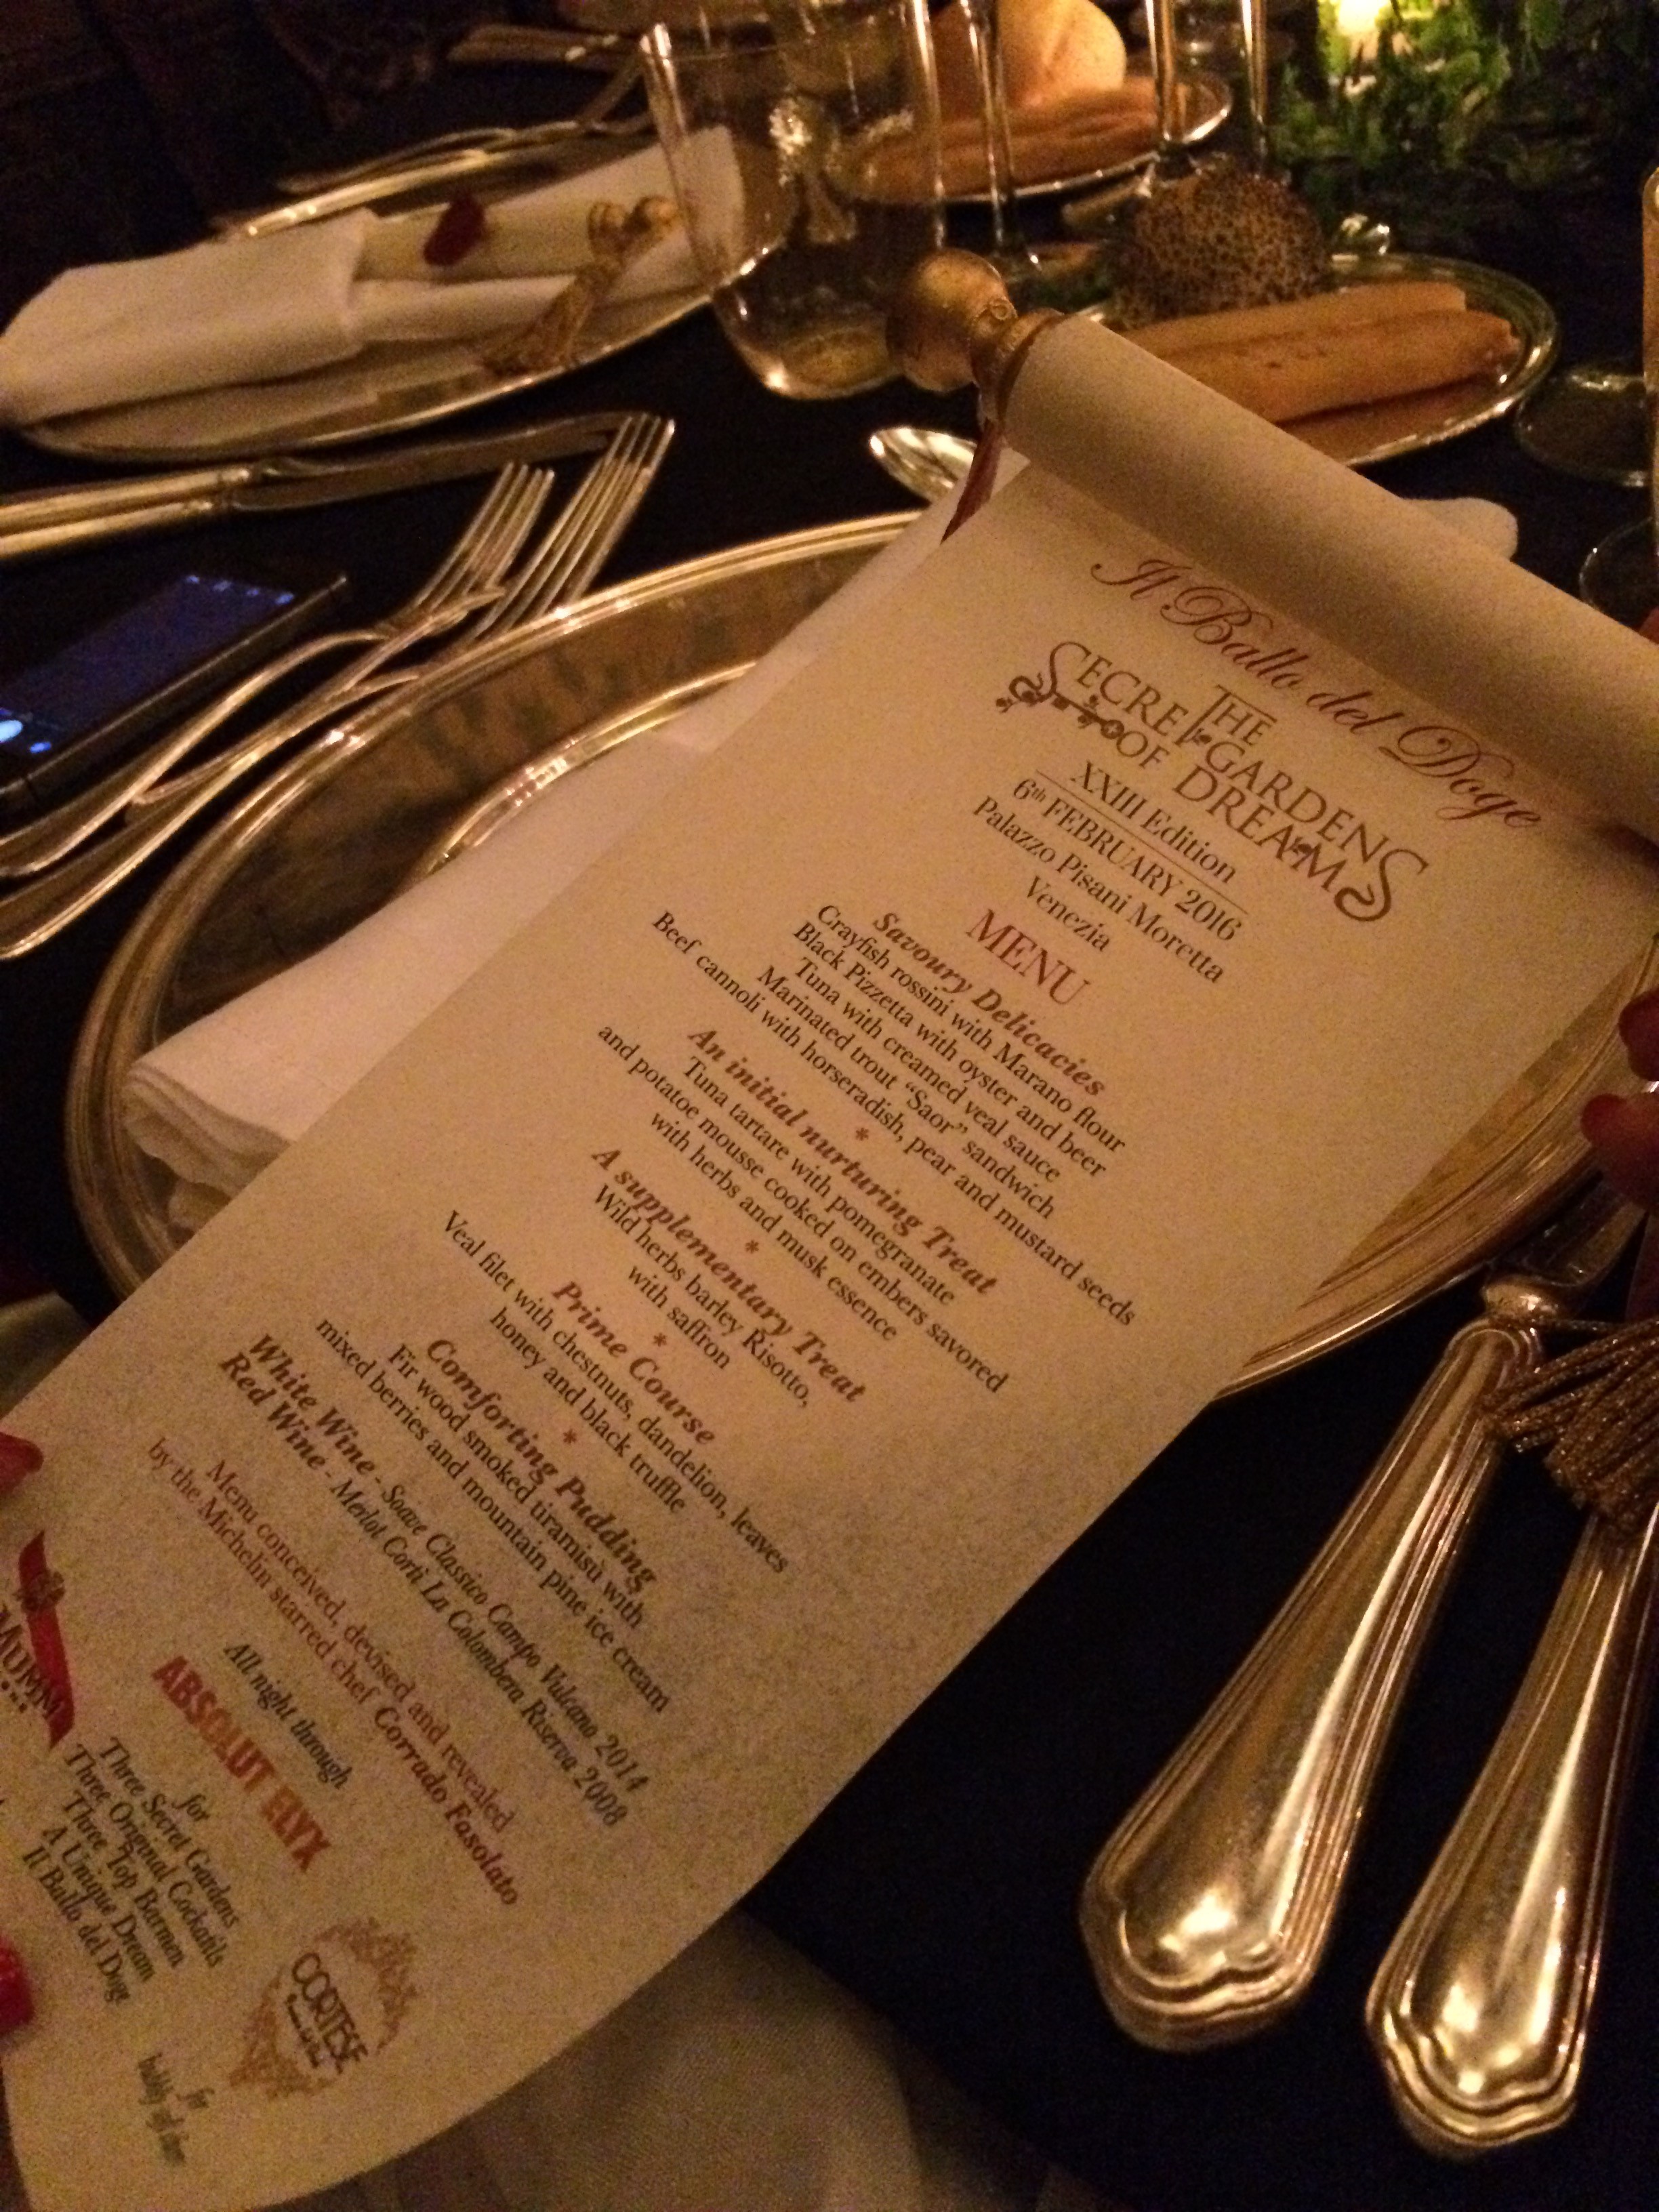 Il Ballo del Doge
THE
SECRET GARDENS
OF DREAMS
XXIII Edition
6th FEBRUARY 2016
Palazzo Pisani Moretta
Venezia
MENU
Savoury Delicacies
Crayfish rossini with Marano flour
Black Pizzetta with oyster and beer
Tuna with creamed veal sauce
Marinated trout “Saor” sandwich
Beef cannoli with horseradish, pear and mustard seeds
*
An initial nurturing Treat
Tuna tartare with pomegranate
and potatoe mousse cooked on embers savored
with herbs and musk essence
*
A supplementary Treat
Wild herbs barley Risotto,
with saffron
*
Prime Course
Veal filet with chestnuts, dandelion, leaves
honey and black truffle
*
Comforting Pudding
Fir wood smoked tiramisù with
mixed berries and mountain pine ice cream
White Wine - Soave Classico Campo Vulcano 2014
Red Wine - Merlot Corti La Colombera Riserva 2008
Menu conceived, devised and revealed
by the Michelin starred chef Corrado Fasolato
MUMM
All night through
ABSOLUT ELYX
for
Three Secret Gardens
Three Original Cocktails
Three Top Barmen
A Unique Dream
Il Ballo del Doge
CORTESE
for